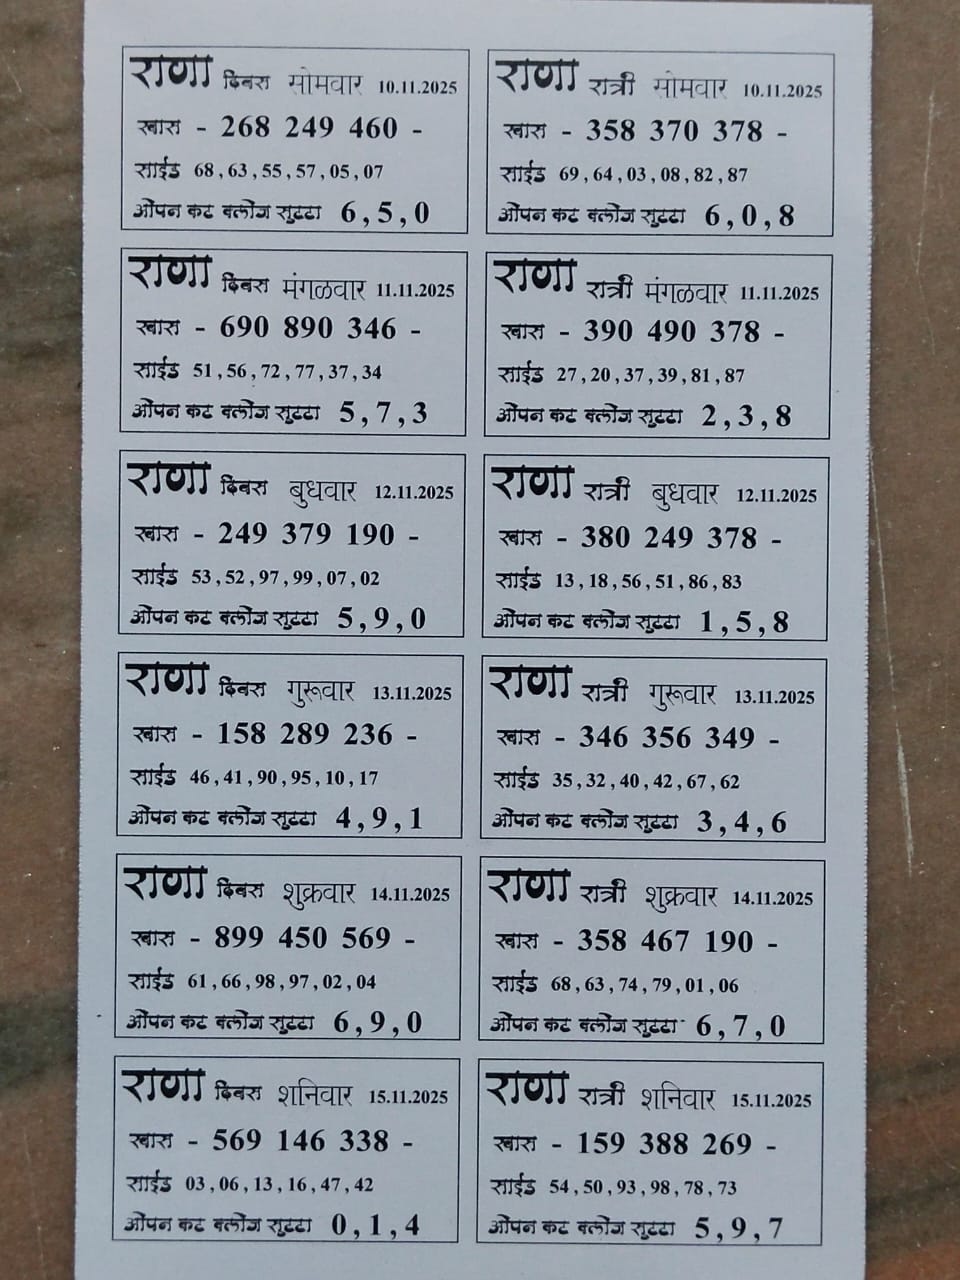 राणा दिवस सोमवार 10.11.2025
खास - 268 249 460 -
साईड 68,63,55,57,05,07
ओपन कट क्लोज सुट्टा 6,5,0
राणा रात्री सोमवार 10.11.2025
खास - 358 370 378 -
साईड 69,64,03,08,82,87
ओपन कट क्लोज सुट्टा 6,0,8
राणा दिवस मंगळवार 11.11.2025
खास - 690 890 346 -
साईड 51,56,72,77,37,34
ओपन कट क्लोज सुट्टा 5,7,3
राणा रात्री मंगळवार 11.11.2025
खास - 390 490 378 -
साईड 27,20,37,39,81,87
ओपन कट क्लोज सुट्टा 2,3,8
राणा दिवस बुधवार 12.11.2025
खास - 249 379 190 -
साईड 53,52,97,99,07,02
ओपन कट क्लोज सुट्टा 5,9,0
राणा रात्री बुधवार 12.11.2025
खास - 380 249 378 -
साईड 13,18,56,51,86,83
ओपन कट क्लोज सुट्टा 1,5,8
राणा दिवस गुरूवार 13.11.2025
खास - 158 289 236 -
साईड 46,41,90,95,10,17
ओपन कट क्लोज सुट्टा 4,9,1
राणा रात्री गुरूवार 13.11.2025
खास - 346 356 349 -
साईड 35,32,40,42,67,62
ओपन कट क्लोज सुट्टा 3,4,6
राणा दिवस शुक्रवार 14.11.2025
खास - 899 450 569 -
साईड 61,66,98,97,02,04
ओपन कट क्लोज सुट्टा 6,9,0
राणा रात्री शुक्रवार 14.11.2025
खास - 358 467 190 -
साईड 68,63,74,79,01,06
ओपन कट क्लोज सुट्टा 6,7,0
राणा दिवस शनिवार 15.11.2025
खास - 569 146 338 -
साईड 03,06,13,16,47,42
ओपन कट क्लोज सुट्टा 0,1,4
राणा रात्री शनिवार 15.11.2025
खास - 159 388 269 -
साईड 54,50,93,98,78,73
ओपन कट क्लोज सुट्टा 5,9,7